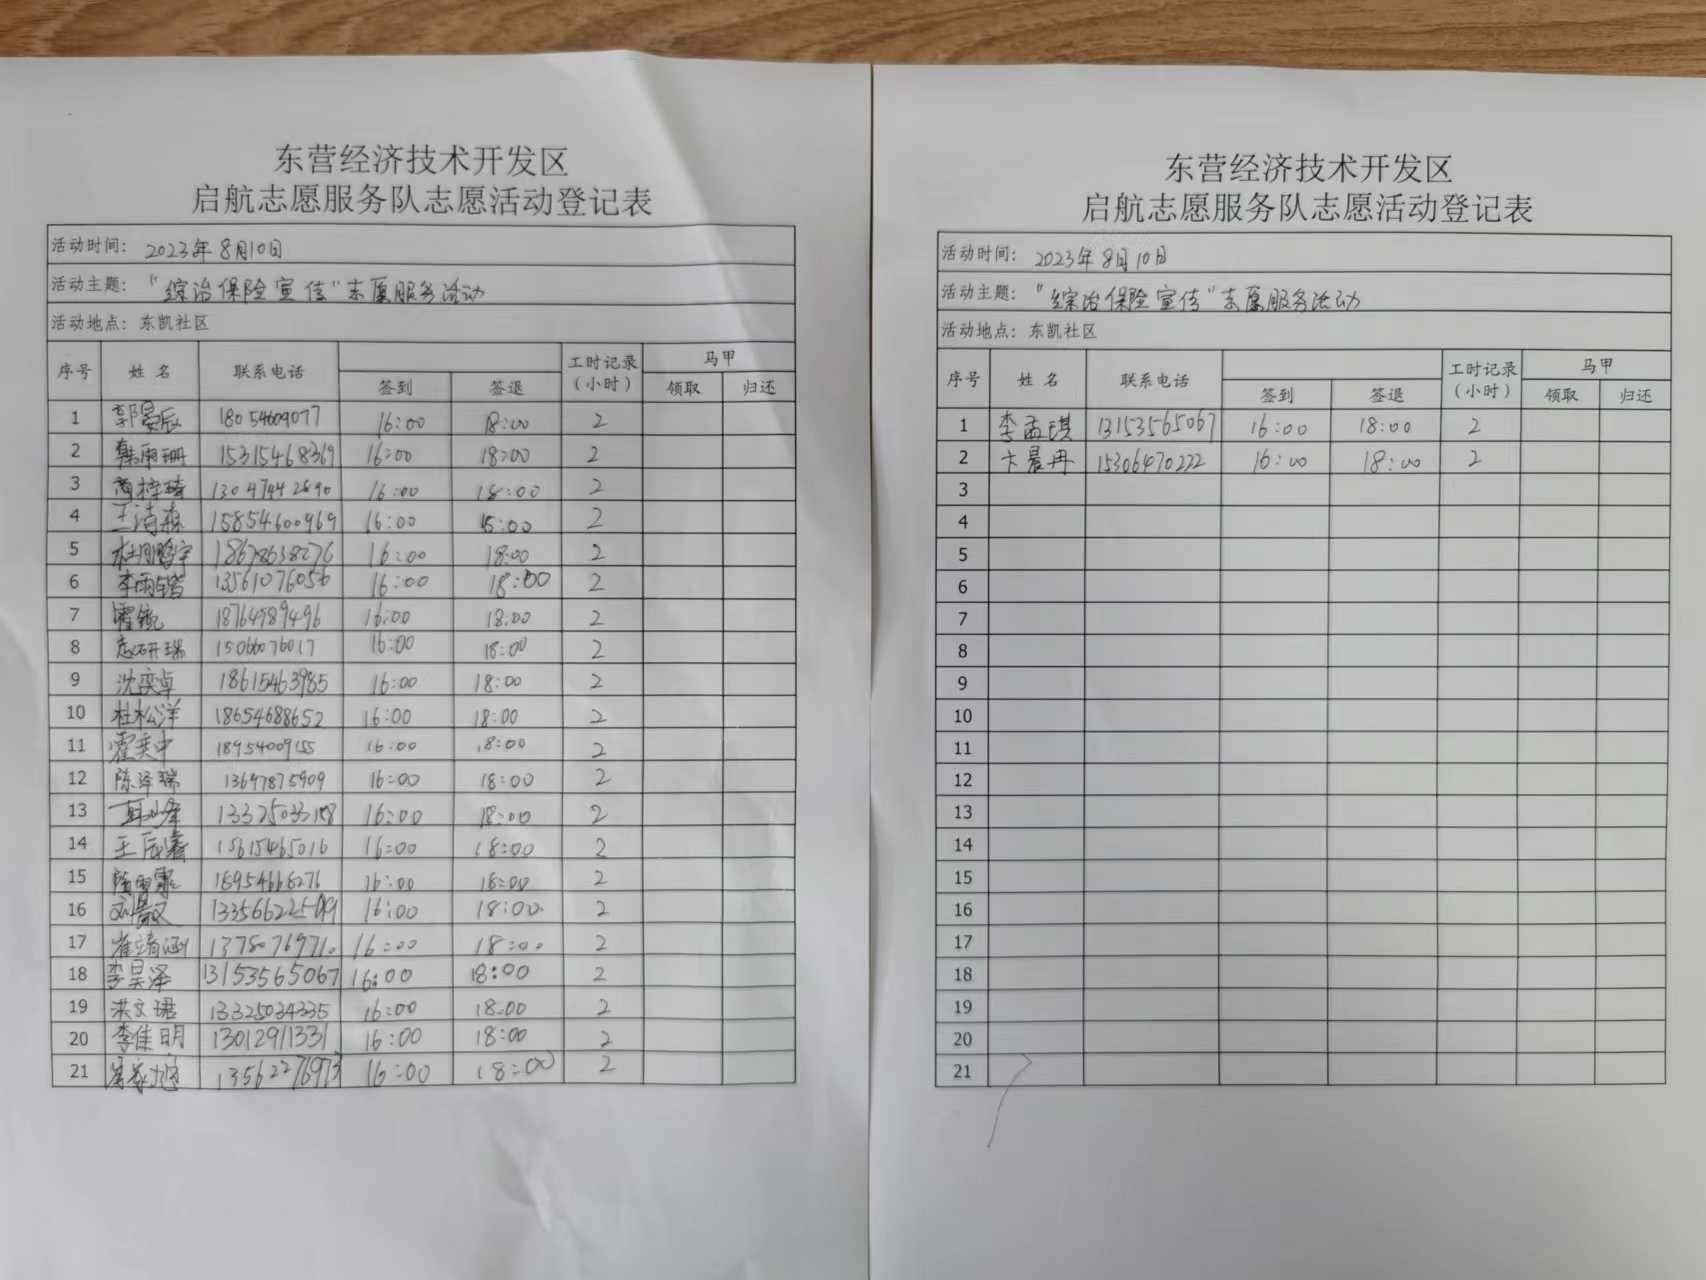 东营经济技术开发区
启航志愿服务队志愿活动登记表
活动时间: 2023年8月10日
活动主题: "综治保险宣传"志愿服务活动
活动地点: 东凯社区
序号 姓名 联系电话 签到 签退 工时记录(小时) 马甲 领取 归还
1 郭晏辰 18054609077 16:00 18:00 2
2 韩雨珊 15315468369 16:00 18:00 2
3 13047442890 16:00 18:00 2
4 王诗森 15854600969 16:00 15:00 2
5 18678638276 16:00 18:00 2
6 李雨锴 13561076056 16:00 18:00 2
7 18764589496 16:00 18:00 2
8 15066076017 16:00 18:00 2
9 沈奕卓 18615463985 16:00 18:00 2
10 杜松洋 18654688652 16:00 18:00 2
11 霍奕中 18954009155 16:00 18:00 2
12 陈泽瑞 13697875909 16:00 18:00 2
13 16:00 18:00 2
14 王辰睿 15615465016 16:00 18:00 2
15 18954668276 16:00 18:00 2
16 16:00 18:00 2
17 崔靖涵 1375076971 16:00 18:00 2
18 李昊泽 13153565067 16:00 18:00 2
19 洪文珺 13325034335 16:00 18:00 2
20 李佳明 13012911331 16:00 18:00 2
21 13562276973 16:00 18:00 2
东营经济技术开发区
启航志愿服务队志愿活动登记表
活动时间: 2023年8月10日
活动主题: "综治保险宣传"志愿服务活动
活动地点: 东凯社区
序号 姓名 联系电话 签到 签退 工时记录(小时) 马甲 领取 归还
1 李孟琪 13153565067 16:00 18:00 2
2 卞晨冉 15306470222 16:00 18:00 2
3
4
5
6
7
8
9
10
11
12
13
14
15
16
17
18
19
20
21